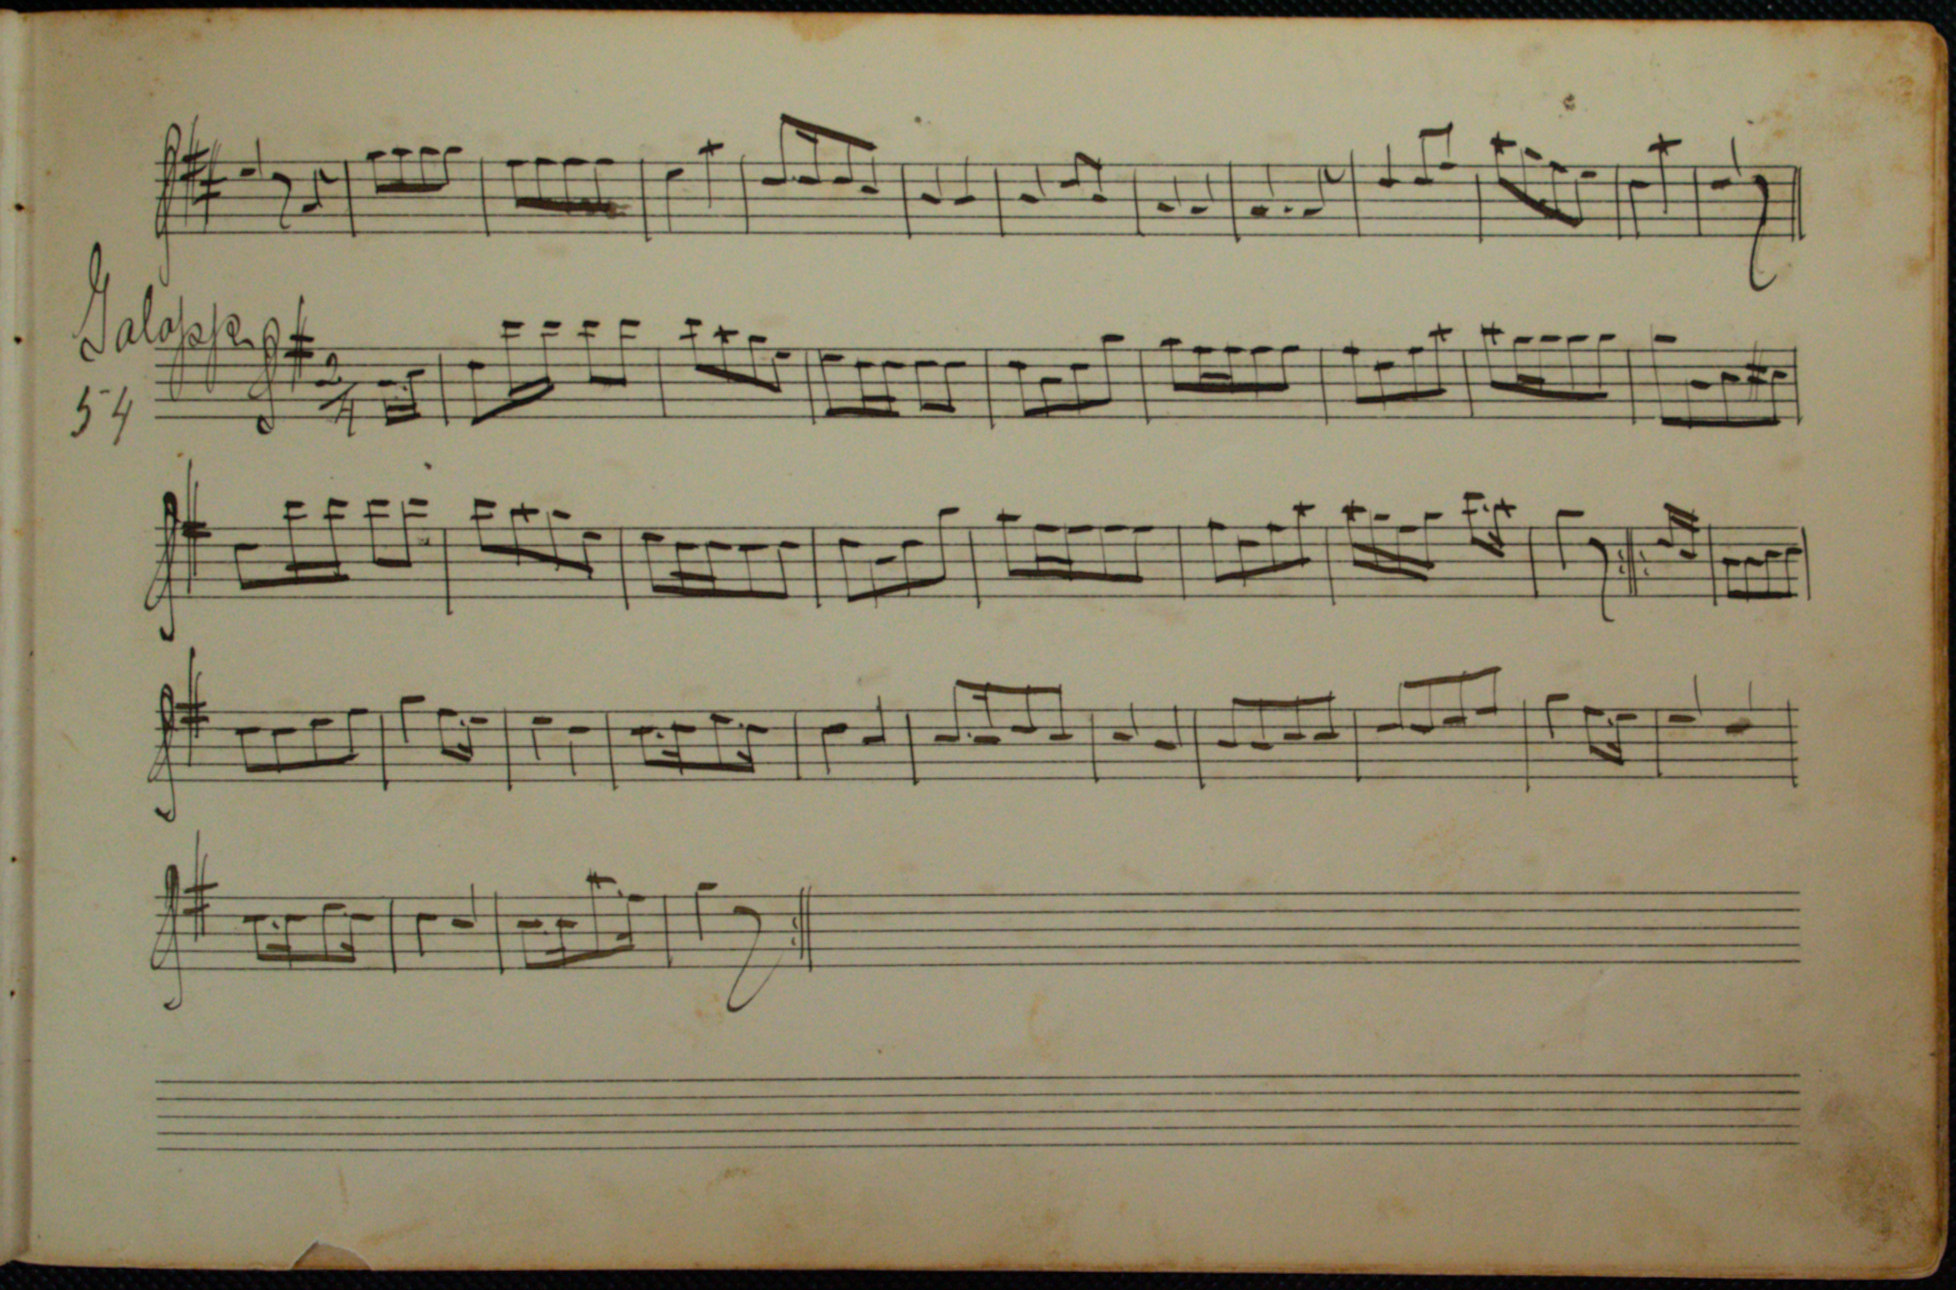 Galopp
54
2/4